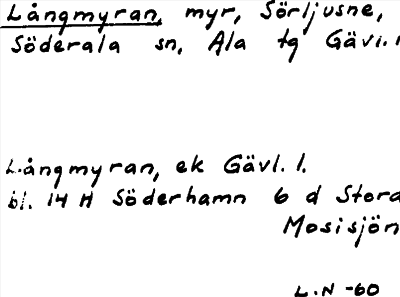 Långmyran, myr, Sörljusne,
Söderala sn, Ala tg Gävl. l
Långmyran, ek Gävl. l.
bl. 14 H Söderhamn 6 d Stora
Mosisjön
L.N -60